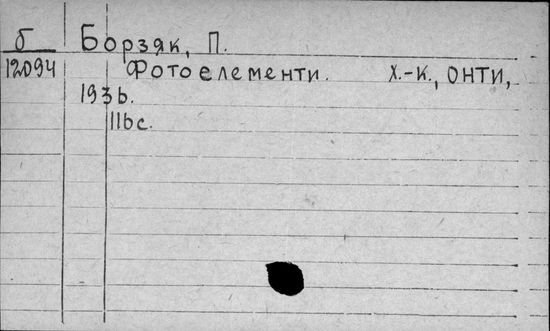 б Борзяк, П.
12094 Фотоелементи. Х.-К., ОНТИ,
1936.
116с.